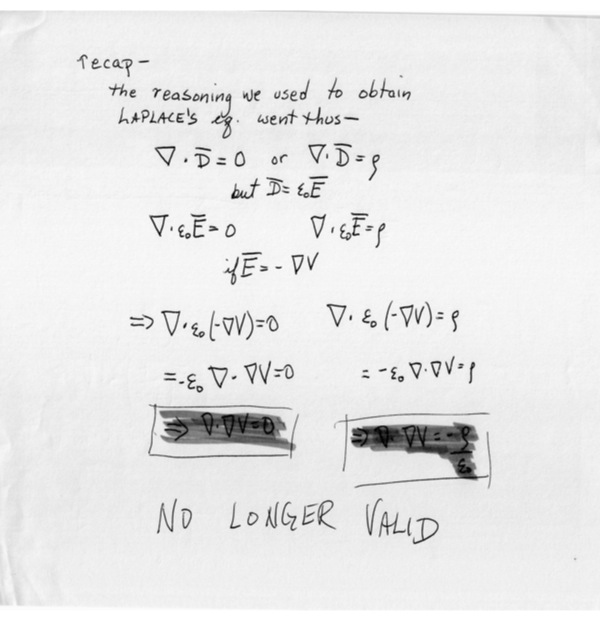 recap-
the reasoning we used to obtain
LAPLACE'S eq. went thus-
∇·D̅=0 or ∇·D̅=ρ
but D̅=ε₀E̅
∇·ε₀E̅=0 ∇·ε₀E̅=ρ
if E̅=-∇V
=> ∇·ε₀(-∇V)=0 ∇·ε₀(-∇V)=ρ
=-ε₀∇·∇V=0 =-ε₀∇·∇V=ρ
=> ∇·∇V=0 => ∇·∇V=-ρ/ε₀
NO LONGER VALID